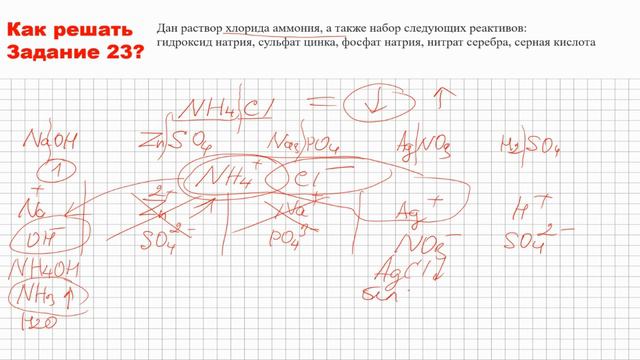 Как решать
Задание 23?
Дан раствор хлорида аммония, а также набор следующих реактивов:
гидроксид натрия, сульфат цинка, фосфат натрия, нитрат серебра, серная кислота
NH4|Cl = ↓ ↑
Na|OH Zn|SO4 Na3|PO4 Ag|NO3 H2|SO4
1 NH4+ Cl−
Na+ Zn2+ Na+ Ag+ H+
OH− SO4 2− PO4 3− NO3− SO4 2−
NH4OH AgCl↓
NH3↑ бел.
H2O